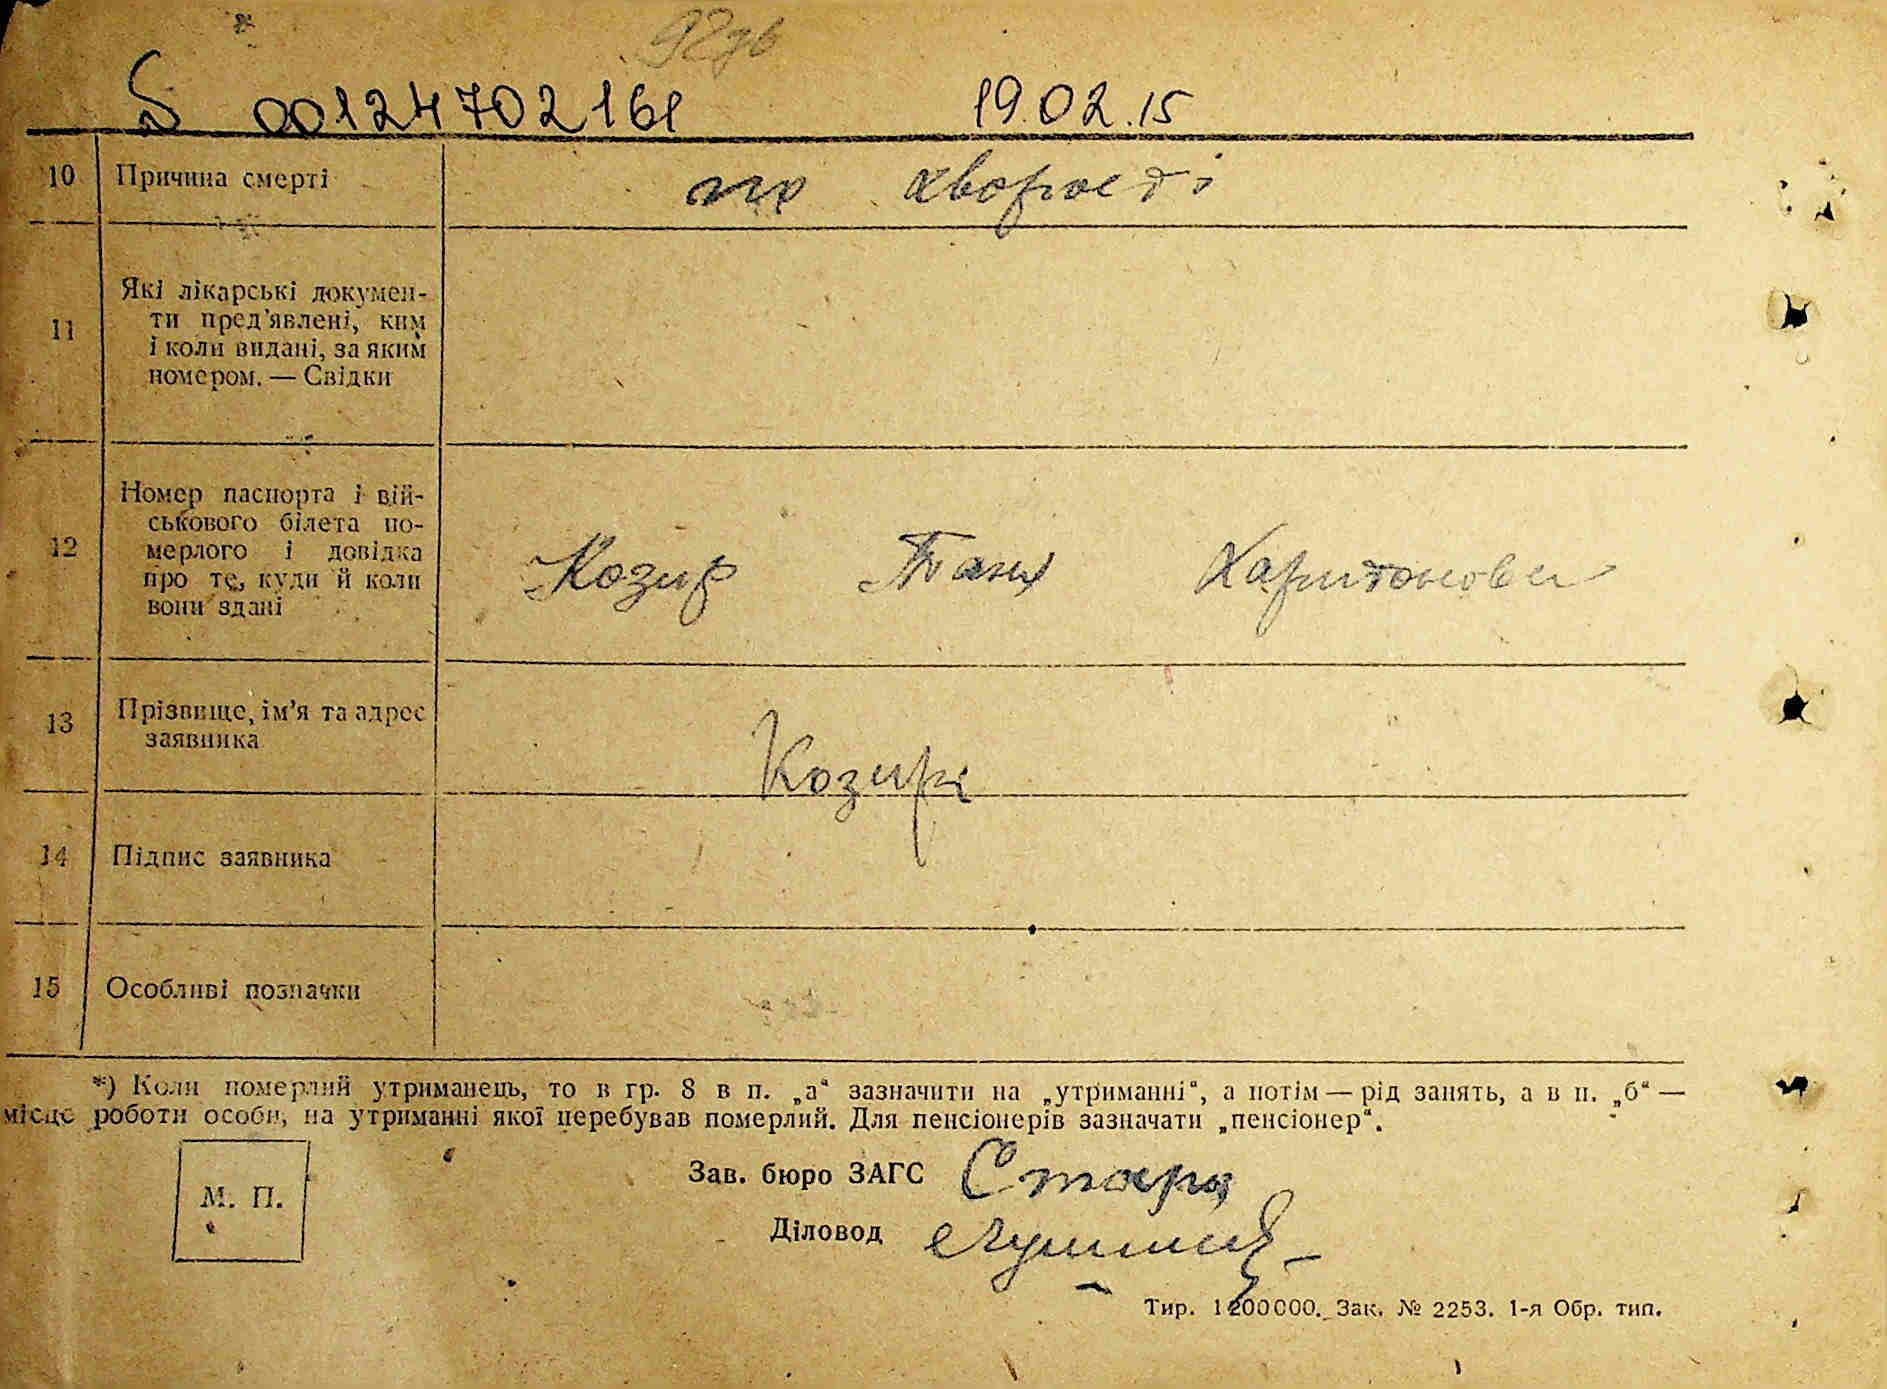 00124702161 19.02.15
10 Причина смерті по хворості
11 Які лікарські докумен-
ти пред'явлені, ким
і коли видані, за яким
номером. — Свідки
12 Номер паспорта і вій-
ськового білета по-
мерлого і довідка
про те, куди й коли
вони здані
Козир Харитонович
13 Прізвище, ім'я та адрес
заявника
Козирі
14 Підпис заявника
15 Особливі позначки
*) Коли померлий утриманець, то в гр. 8 в п. „а“ зазначити на „утриманні“, а потім — рід занять, а в п. „б“ —
місце роботи особи, на утриманні якої перебував померлий. Для пенсіонерів зазначати „пенсіонер“.
М. П.
Зав. бюро ЗАГС
Діловод
Тир. 1200000. Зак. № 2253. 1-я Обр. тип.